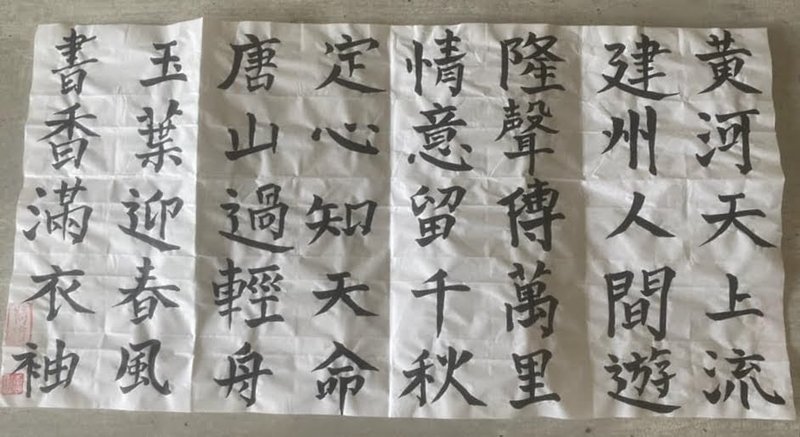 黃河天上流
建州人間遊
隆聲傳萬里
情意留千秋
定心知天命
唐山過輕舟
玉葉迎春風
書香滿衣袖